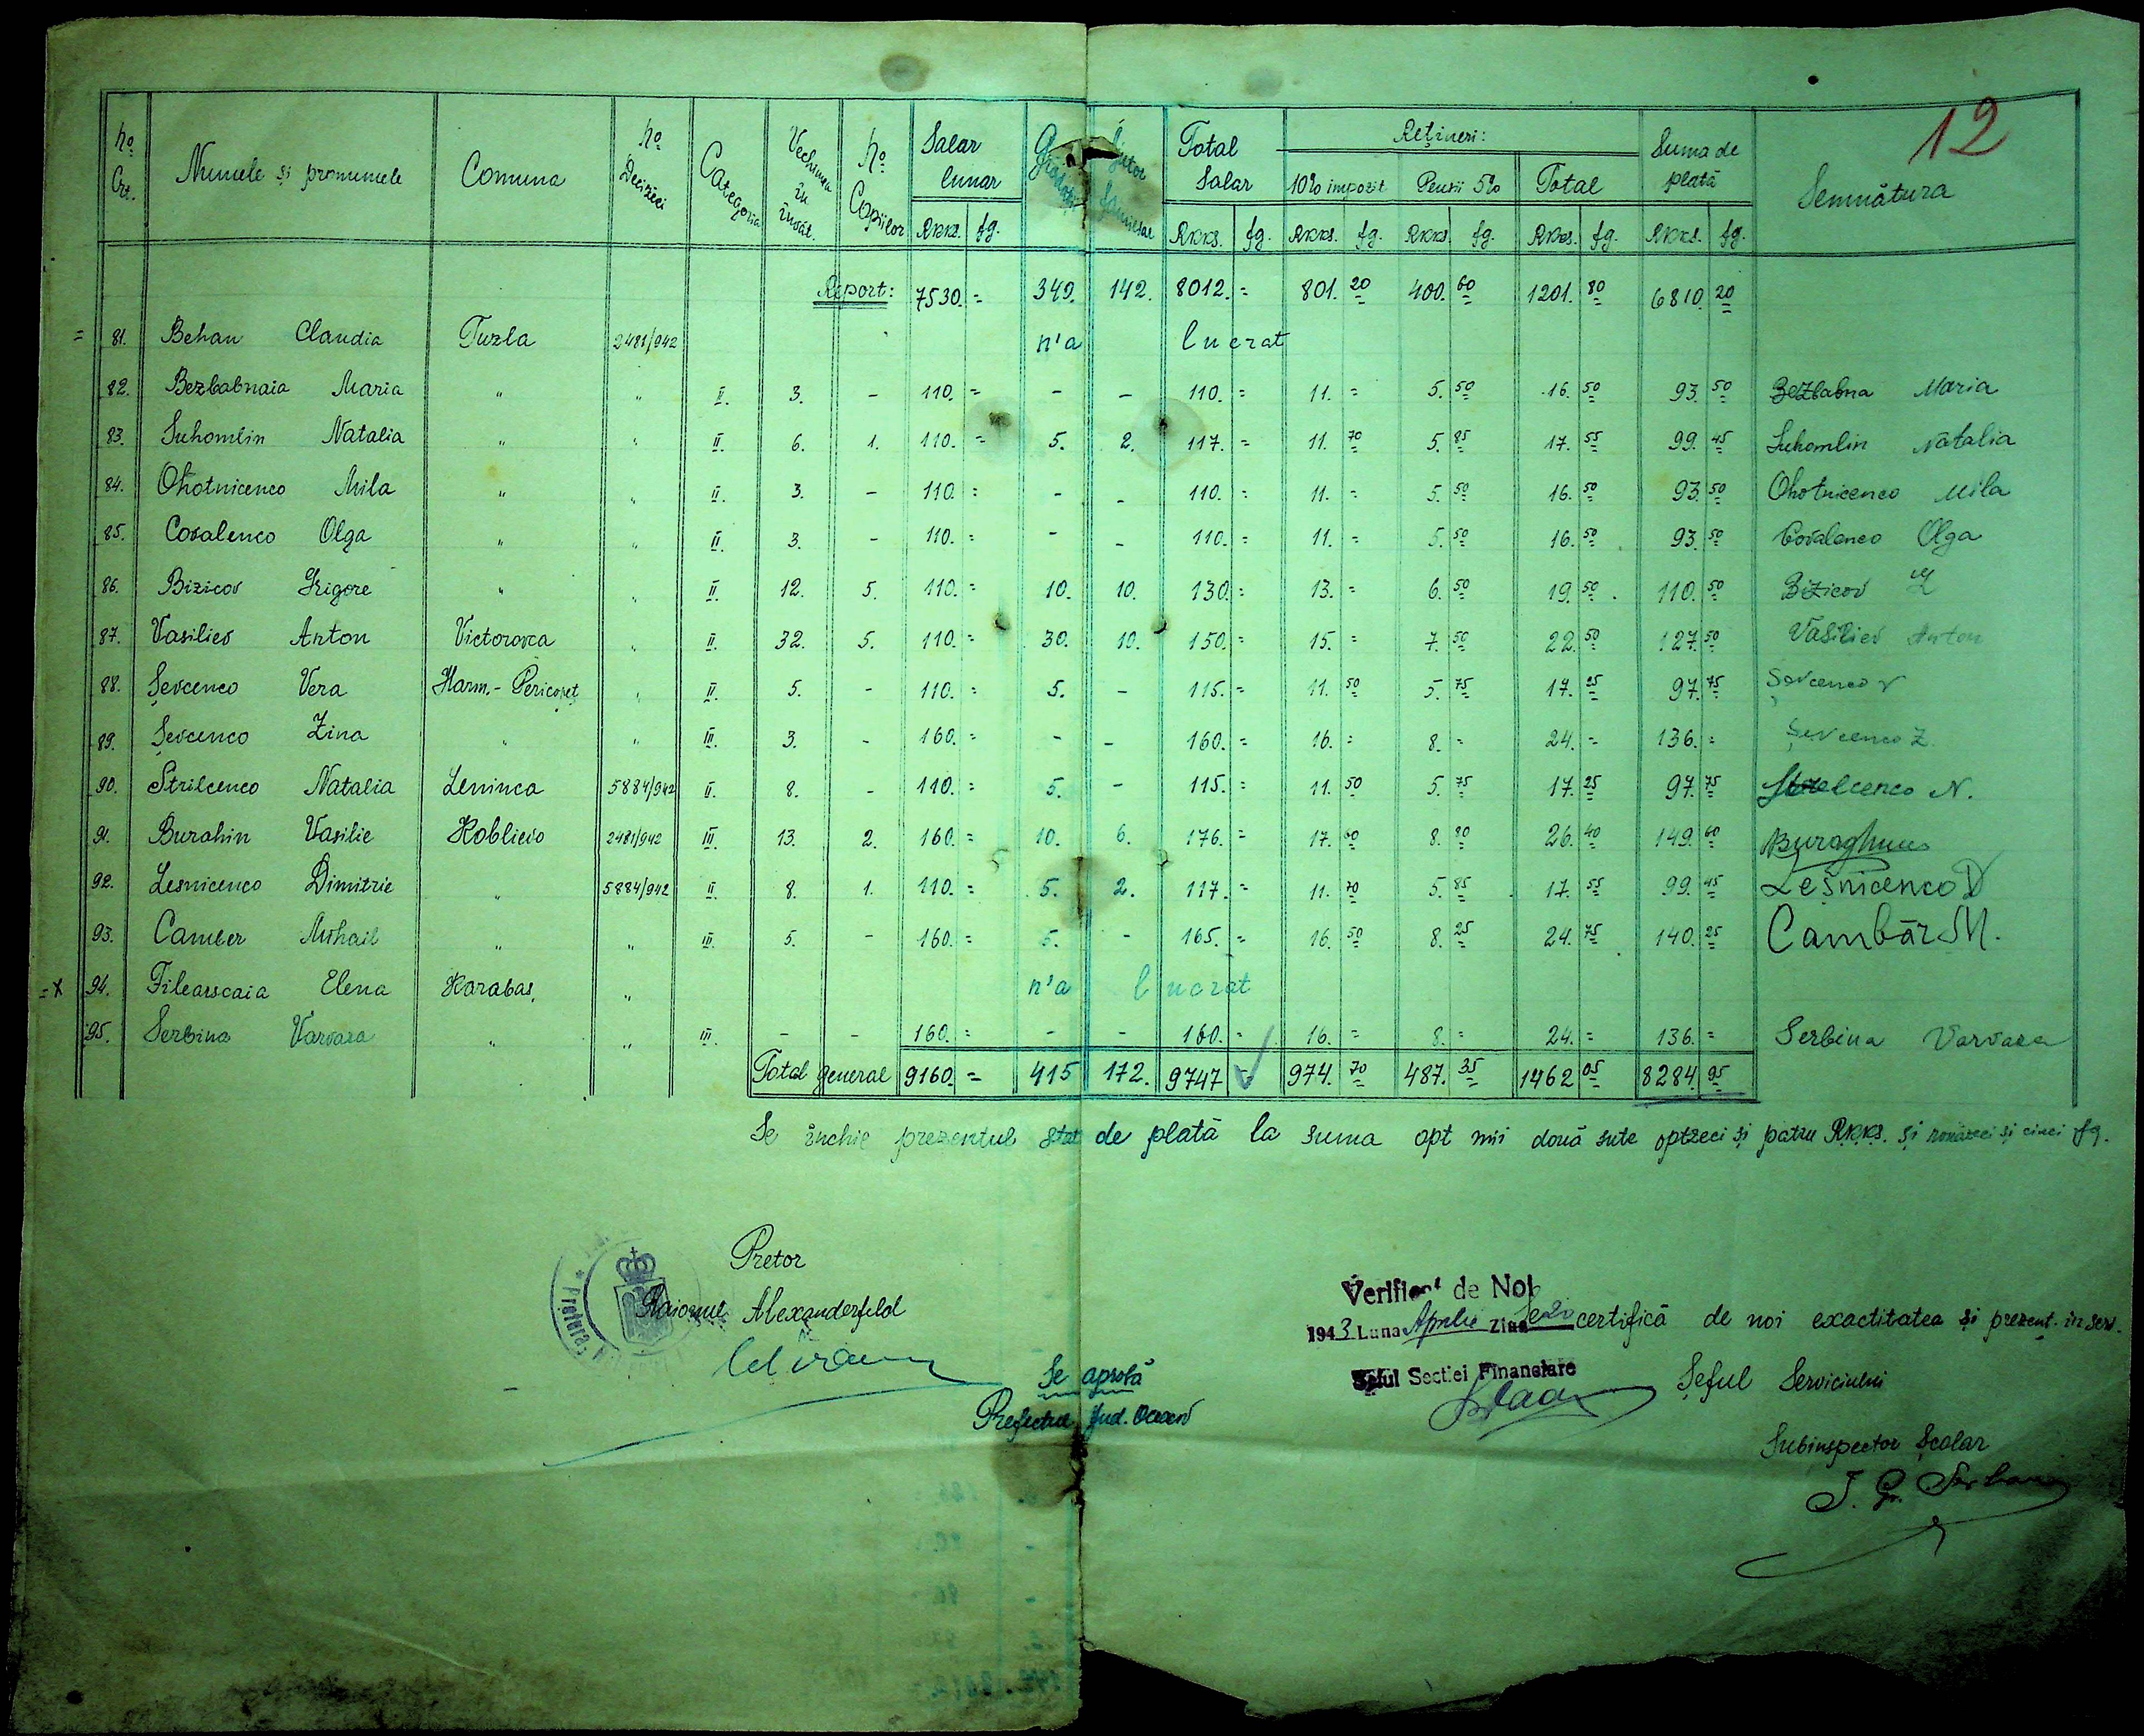 12
No Crt. Numele și pronumele Comuna No Decizeci Categoria Vechimea în învăț. No Copiilor Salar lunar Gradații Ajutor familiar Total Salar Rețineri: Suma de plată Semnătura
10% impozit Pensii 5% Total
RKKS. fg. RKKS. fg. RKKS. fg. RKKS. fg. RKKS. fg. RKKS. fg.
Report: 7530. = 349. 142. 8012. = 801. 20 400. 60 1201. 80 6810. 20
= 81. Behan Claudia Tuzla 2481/942 n'a lucrat
82. Bezbabnaia Maria " " II. 3. - 110. = - - 110. = 11. = 5. 50 16. 50 93. 50 Bezbabna Maria
83. Suhomlin Natalia " " II. 6. 1. 110. = 5. 2. 117. = 11. 70 5. 85 17. 55 99. 45 Suhomlin Natalia
84. Ohotnicenco Mila " " II. 3. - 110. = - - 110. = 11. = 5. 50 16. 50 93. 50 Ohotnicenco Mila
85. Covalenco Olga " " II. 3. - 110. = - - 110. = 11. = 5. 50 16. 50 93. 50 Covalenco Olga
86. Bizicov Grigore " " II. 12. 5. 110. = 10. 10. 130. = 13. = 6. 50 19. 50 110. 50 Bizicov
87. Vasiliev Anton Victorovca " II. 32. 5. 110. = 30. 10. 150. = 15. = 7. 50 22. 50 127. 50 Vasiliev Anton
88. Șevcenco Vera Harm.- Pericopeț " II. 5. - 110. = 5. - 115. = 11. 50 5. 75 17. 25 97. 75 Șevcenco V
89. Șevcenco Zina " " III. 3. - 160. = - - 160. = 16. = 8. = 24. = 136. = Șevcenco Z.
90. Strilcenco Natalia Leninca 5884/942 II. 8. - 110. = 5. - 115. = 11. 50 5. 75 17. 25 97. 75 Strelcenco N.
91. Burahin Vasilie Koblievo 2481/942 III. 13. 2. 160. = 10. 6. 176. = 17. 60 8. 80 26. 40 149. 60
92. Lesnicenco Dimitrie " 5884/942 II. 8. 1. 110. = 5. 2. 117. = 11. 70 5. 85 17. 55 99. 45 Leșnicenco D
93. Camber Mihail " " III. 5. - 160. = 5. - 165. = 16. 50 8. 25 24. 75 140. 25 Cambăr M.
=x 94. Filearscaia Elena Karabas. " n'a lucrat
95. Serbina Varvara " " III. - - 160. = - - 160. = 16. = 8. = 24. = 136. = Serbina Varvara
Total general 9160. = 415 172. 9747 = 974. 70 487. 35 1462 05 8284. 95
Se închie prezentul stat de plată la suma opt mii două sute optzeci și patru RKKS. și nouăzeci și cinci fg.
Pretor
Raionul Alexanderfeld
Se aprobă
Prefectul Jud. Oceacov
Verificat de Noi
1943 Luna Aprilie Ziua 20
Șeful Secției Financiare
Se certifică de noi exactitatea și prezent. in serv.
Șeful Serviciului
Subinspector Școlar
I. Gr. Serban
Pretura